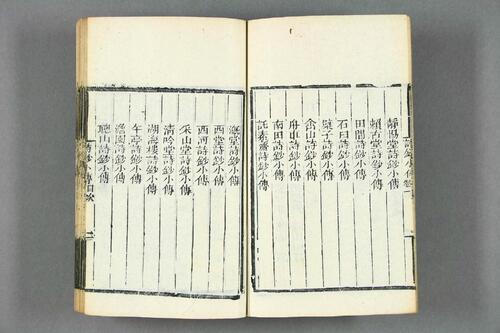 靜惕堂詩鈔小傳
賴古堂詩鈔小傳
田間詩鈔小傳
石臼詩鈔小傳
詩鈔小傳
山詩鈔小傳
舟車詩鈔小傳
南田詩鈔小傳
託素齋詩鈔小傳
堂詩鈔小傳
西堂詩鈔小傳
西河詩鈔小傳
采山堂詩鈔小傳
清吟堂詩鈔小傳
湖海樓詩鈔小傳
午亭詩鈔小傳
詩鈔小傳
聰山詩鈔小傳